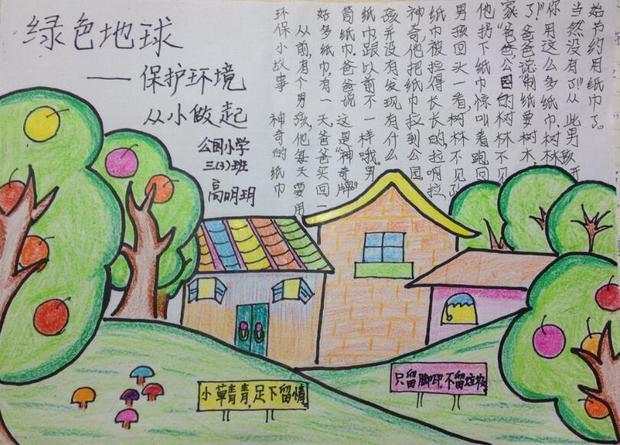 绿色地球
——保护环境
从小做起
公园小学
三(3)班
高明玥
环保小故事 神奇的纸巾
从前,有个男孩,他每天要用
好多纸巾,有一天爸爸买回一
筒纸巾。爸爸说:"这是"神奇牌"
纸巾跟以前不一样哦。男
孩并没有发现有什么
神奇,他把纸巾拉到公园
纸巾被拉得长长的,拉啊拉
男孩回头一看树林不见
他扔下纸巾惊叫着跑回
家"爸爸公园的树林不见
了!"爸爸说"制纸要树木,
你用这么多纸巾,树林
当然没有了!"从此男孩开
始节约用纸巾了。
小草青青,足下留情
只留脚印,不留垃圾